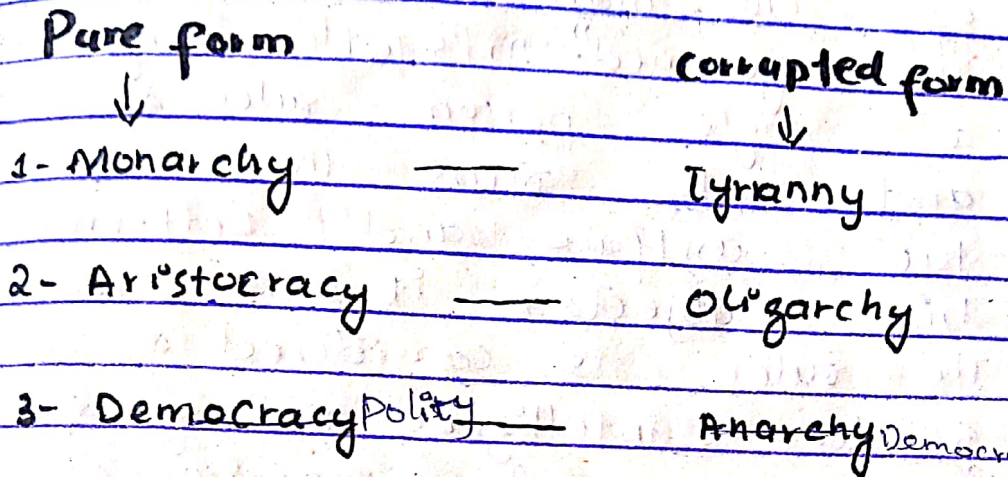 Pure form
Corrupted form
↓ ↓
1- Monarchy — Tyranny
2- Aristocracy — Oligarchy
3- Democracy Polity — Anarchy Democr